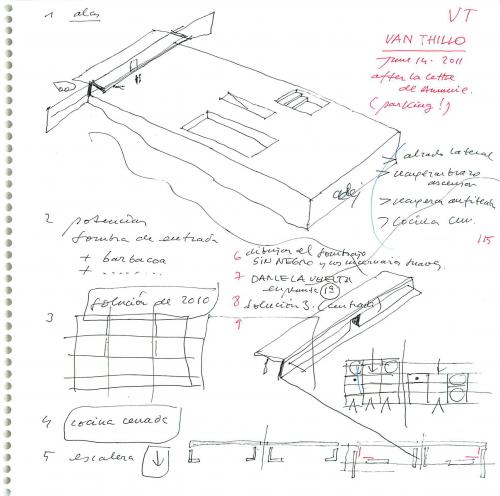 1 alas
VT
VAN THILLO
June 14. 2011
after la lettre
de Annemie.
(parking!)
alzado lateral
recuperar brazo
ascensor
recuperar anfiteatro
cocina
1/5
2 potenciar
sombra de entrada
+ barbacoa
+ ........
6 dibujar el sombrajo
SIN NEGRO y
7 DARLE LA VUELTA
1ª
8 Solución 3. (centrada)
9
solución de 2010
3
4 cocina cerrada
5 escalera ↓